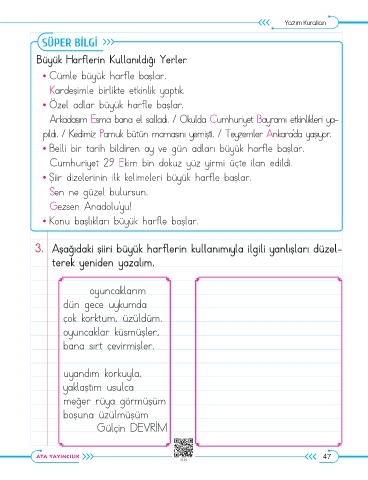 Yazım Kuralları
SÜPER BİLGİ
Büyük Harflerin Kullanıldığı Yerler
• Cümle büyük harfle başlar.
Kardeşimle birlikte etkinlik yaptık.
• Özel adlar büyük harfle başlar.
Arkadaşım Esma bana el salladı. / Okulda Cumhuriyet Bayramı etkinlikleri ya-
pıldı. / Kedimiz Pamuk bütün mamasını yemişti. / Teyzemler Ankara'da yaşıyor.
• Belli bir tarih bildiren ay ve gün adları büyük harfle başlar.
Cumhuriyet 29 Ekim bin dokuz yüz yirmi üçte ilan edildi.
• Şiir dizelerinin ilk kelimeleri büyük harfle başlar.
Sen ne güzel bulursun.
Gezsen Anadolu'yu!
• Konu başlıkları büyük harfle başlar.
3. Aşağıdaki şiiri büyük harflerin kullanımıyla ilgili yanlışları düzel-
terek yeniden yazalım.
oyuncaklarım
dün gece uykumda
çok korktum, üzüldüm.
oyuncaklar küsmüşler,
bana sırt çevirmişler.
uyandım korkuyla,
yaklaştım usulca
meğer rüya görmüşüm
boşuna üzülmüşüm
Gülçin DEVRİM
ATA YAYINCILIK
47